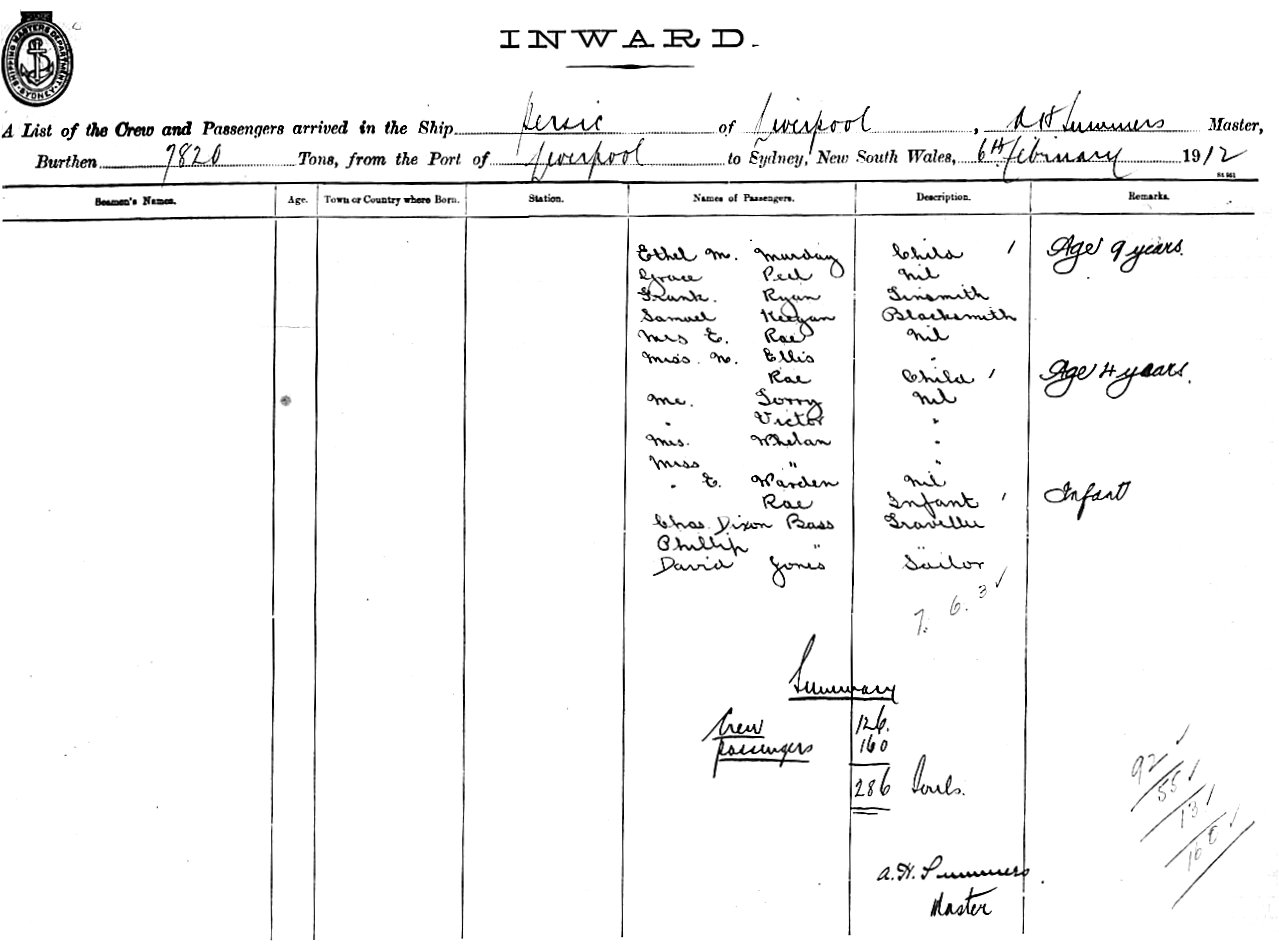 SHIPPING MASTERS DEPARTMENT SYDNEY
INWARD.
A List of the Crew and Passengers arrived in the Ship Persic of Liverpool, A H Summers Master,
Burthen 7820 Tons, from the Port of Liverpool to Sydney, New South Wales, 6th February 1912
Seamen's Names. Age. Town or Country where Born. Station. Names of Passengers. Description. Remarks.
Ethel M. Murday Child 1 Age 9 years.
Grace Peel nil
Frank. Ryan Tinsmith
Samuel Keegan Blacksmith
Mrs E. Rae nil
Miss. N. Ellis "
Rae Child 1 Age 4 years.
Mr. Torry nil
" Victor "
Mrs. Whelan "
Miss " "
" E. Warden nil
Rae Infant 1 Infant
Chas. Dixon Bass Traveller
Phillip " "
David Jones Sailor
7. 6. 3 ✓
Summary
Crew 126.
passengers 160
286 Souls.
92 ✓
55 ✓
13 ✓
160 ✓
A. H. Summers.
Master